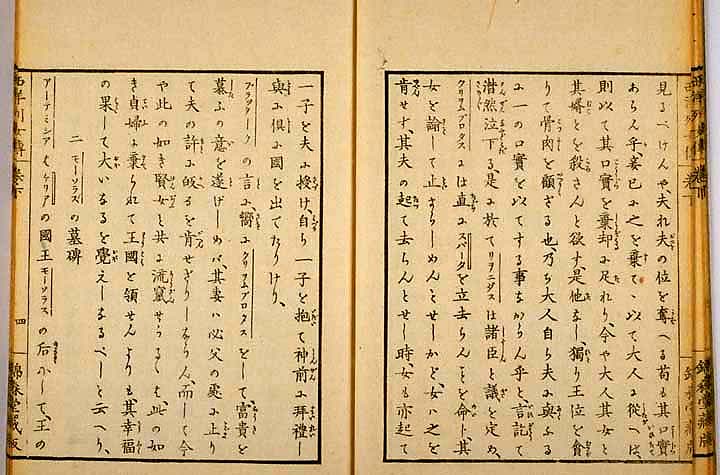 西洋列女傳 卷下
見るべけんや、夫れ夫の位を奪へる苟も其口實
あらん乎妾已に之を棄てゝ以て大人に從へば、
則以て其口實を棄却に足れり、今や大人其女と
其婿とを殺さんと欲す是他なし獨り王位を貪
りて骨肉を顧ざる也、乃ち大人自ら夫に與ふる
に一の口實を以てする事なからん乎と、言訖て
潸然泣下る、是に於てリヲニダスは諸臣と議を定め、
クリヲムブロタスには直にスパータを立去らんことを命ト、其
女を諭して止まらしめんとせしかど、女ハ之を
肯せず、其夫の起て去らんとせし時、女も亦起て
一子を夫に授け自ら一子を抱て神前に拜禮し
與に倶に國を出でたりけり、
プラッタークの言に、嚮にクリヲムブロタスをして、富貴を
慕ふの意を遂げしめバ、其妻ハ必父の處に止り
て夫の許に皈るを肯せざりしならん、而して今
や此の如き賢女と共に流竄せらるゝも、此の如
き貞婦に棄られて王國を領せんよりも、其幸福
の果して大いなるを覺えしなるべしと云へり、
二 モーソラスの墓碑
アーテミシアはケリアの國王モーソラスの后にして、王の
西洋列女傳 卷下 四 錦森堂藏版